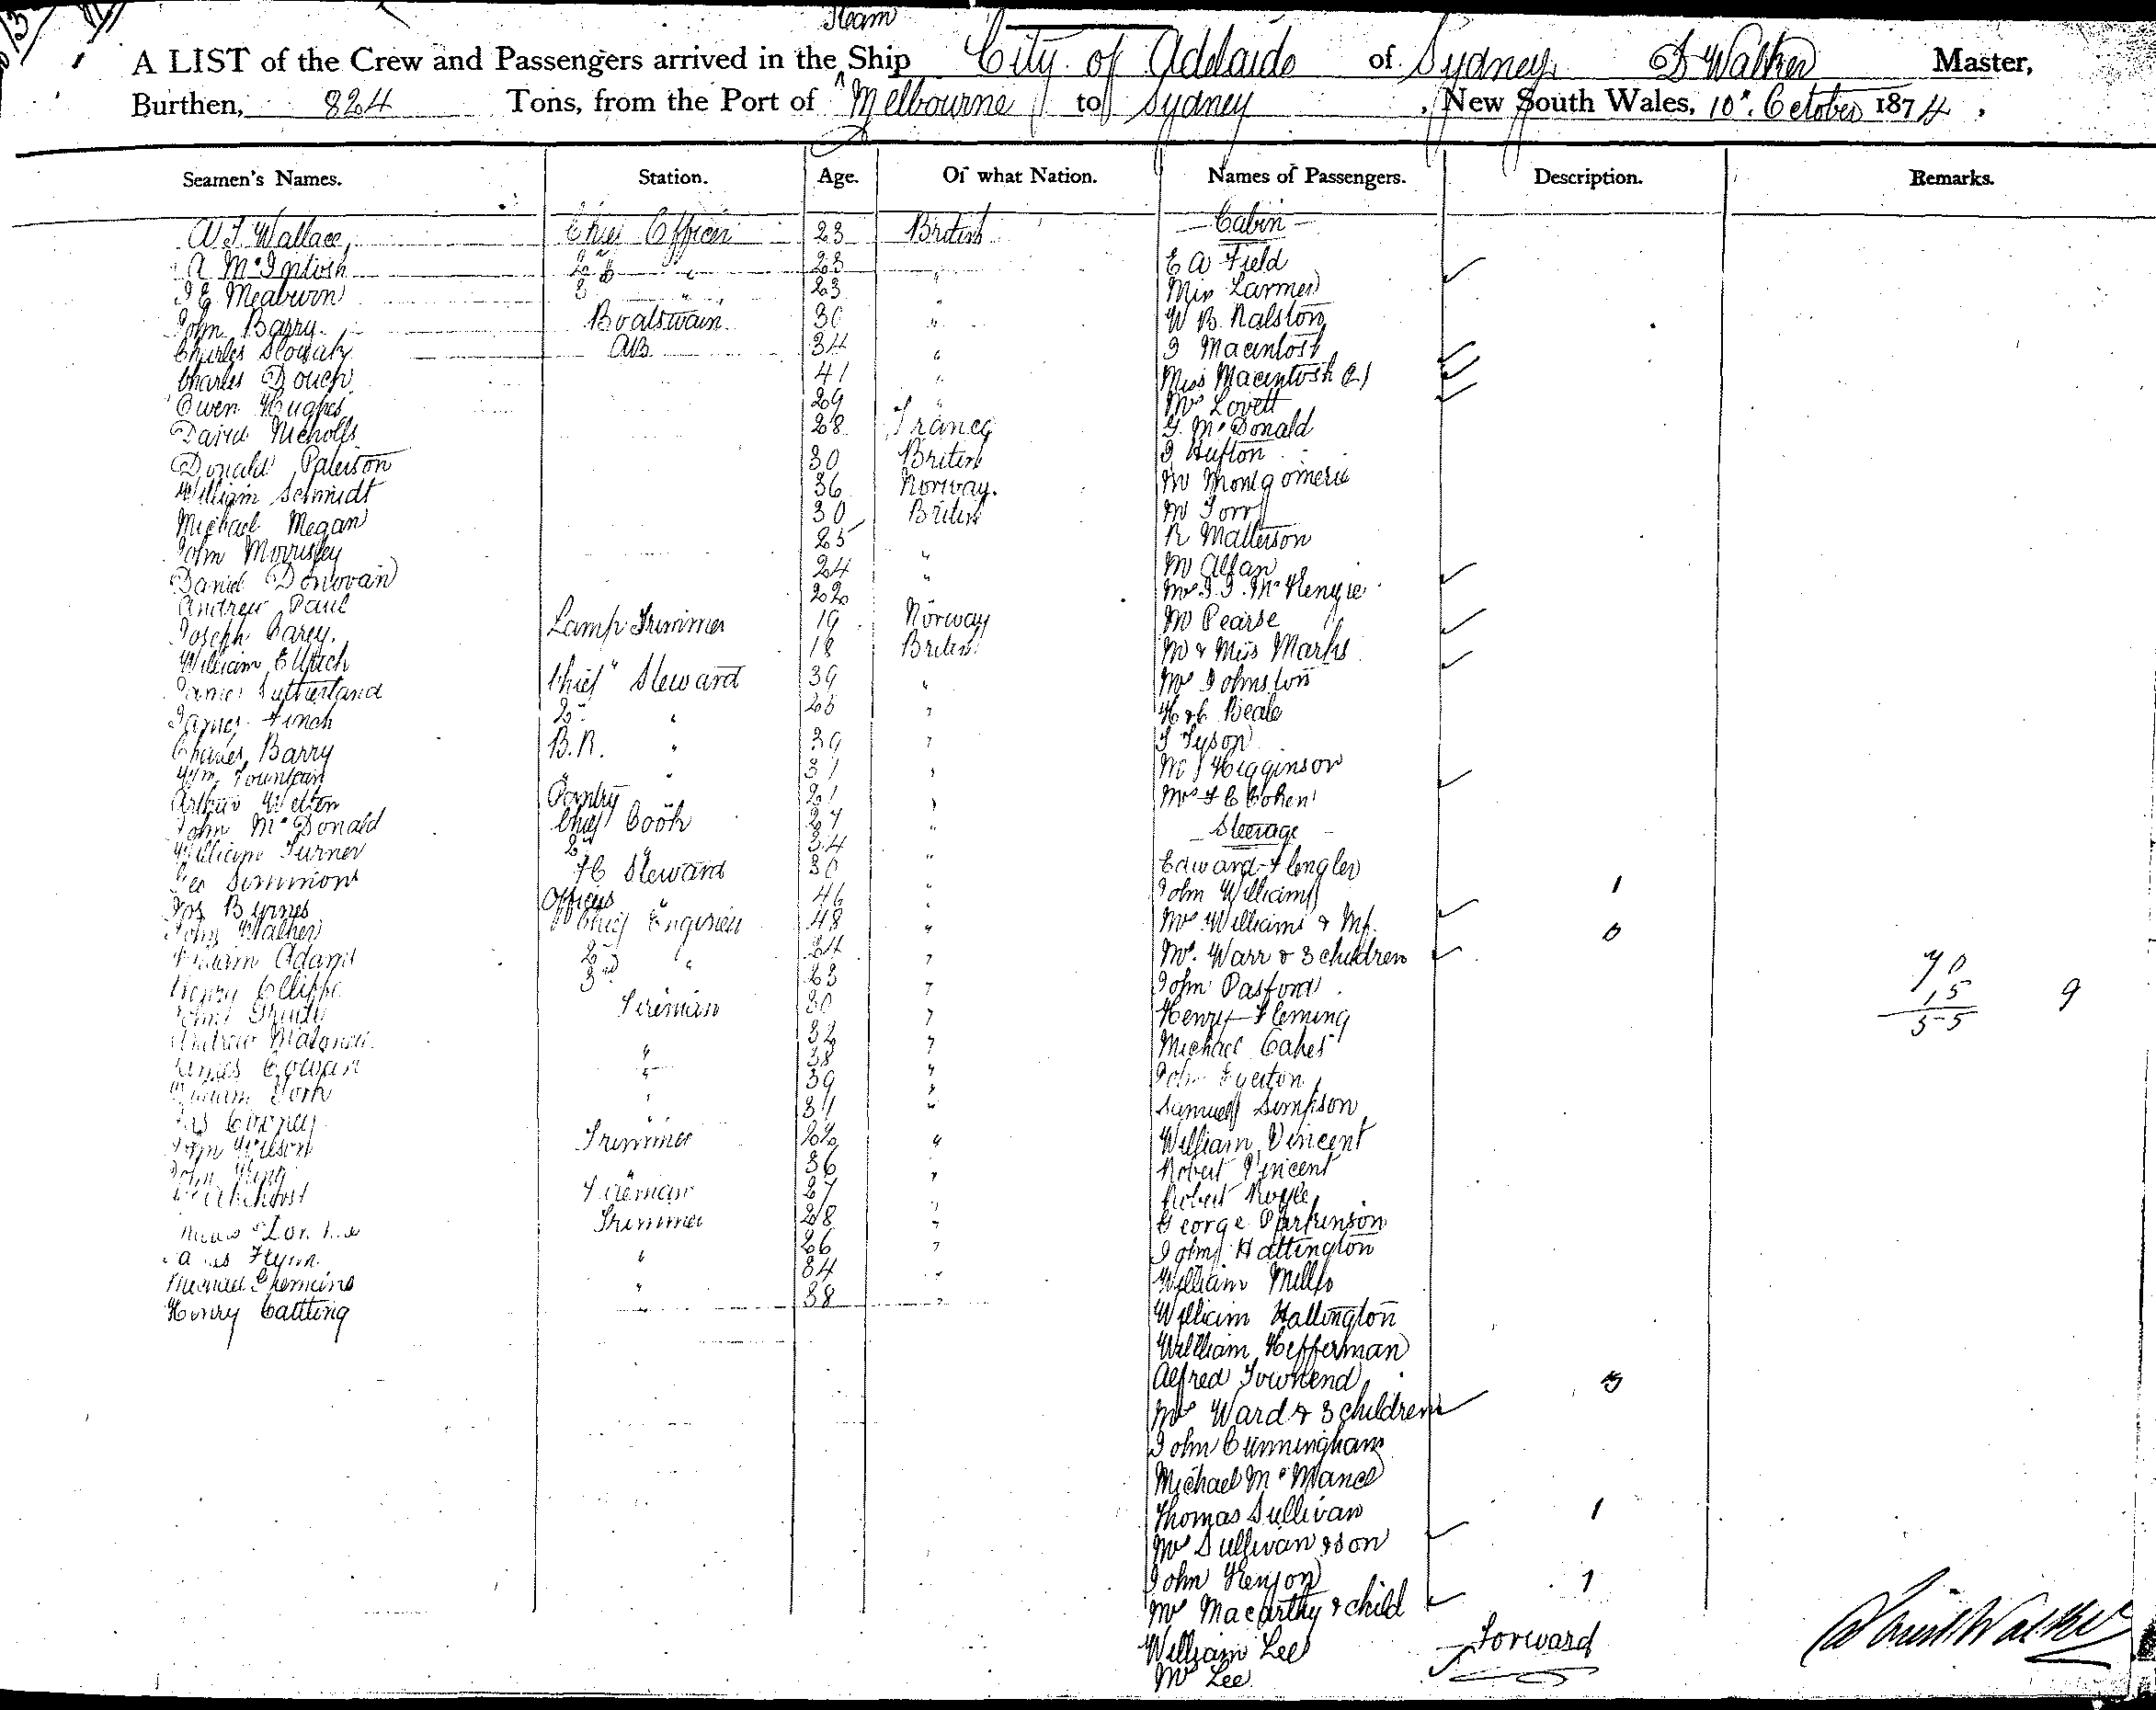 Steam
A LIST of the Crew and Passengers arrived in the Ship City of Adelaide of Sydney, D Walker Master,
Burthen, 824 Tons, from the Port of Melbourne to Sydney, New South Wales, 10th October 1874,
Seamen's Names. Station. Age. Of what Nation. Names of Passengers. Description. Remarks.
Wallace, Chief Officer 23 British
A McIntosh 2nd " 23 "
Meaburn 3 " 23 "
John Barry Boatswain 30 "
Charles AB 34 "
Charles Douch 41 "
Owen Hughes 29 "
David Nicholls 28 France
Donald Paterson 30 British
William Schmidt 36 Norway.
Michael Megan 30 British
John Morrisey 25 "
Daniel Donovan 24 "
Andrew Paul 22
Joseph Carey. Lamp Trimmer 19 Norway
William 18 British
James Sutherland Chief Steward 39 "
James Finch 2nd " 25 "
Charles Barry B.R. " 39 "
Wm. Fountain " 31 "
Arthur Welton Pantry 21 "
John McDonald Chief Cook 27 "
William Turner 2nd " 34 "
Geo Simmons FC Steward 30 "
Jas Byrnes Officers " 46 "
John Walker Chief Engineer 48 "
William Adams 2nd " 24 "
Henry 3rd 23 "
Fireman 30 "
Andrew " 32 "
James Cowan " 38 "
William York " 39 "
" 31 "
John Wilson Trimmer 22 "
John King " 36 "
Fireman 27 "
Trimmer 28 "
Flynn " 26 "
Michael " 34 "
Henry Cattling " 38 "
Cabin
E A Field
Miss Larmer
W B. Ralston
J Macintosh
Miss Macintosh (2)
Mrs Lovett
G. McDonald
J Hufton
Mr Montgomerie
Mr Torr
R Matterson
Mr Allan
Mrs J. J. McKenzie
Mr Pearse
Mr & Miss Marks
Mrs Johnston
H & C Beale
J Tyson
Mr J Higginson
Mrs F C Cohen
Steerage
Edward Flengler
John Williams 1
Mrs Williams & Inf. 0
Mrs. Warr & 3 children
John Pasford
Henry Fleming
Michael Oakes
John Fyerton
Samuel Simpson
William Vincent
Robert Vincent
Robert Royle
George Parkinson
John Hattington
William Mills
William Hallington
William Hefferman
Alfred Townend 3
Mrs Ward & 3 children
John Cunningham
Michael McMance
Thomas Sullivan 1
Mrs Sullivan & son
John Kenyon 1
Mrs Macarthy & child
William Lee
Mrs Lee
Forward
70
15
55
9
David Walker